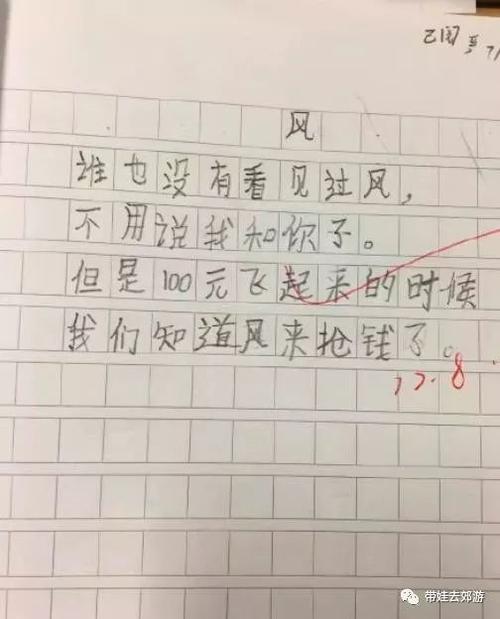 风
谁也没有看见过风，
不用说我和你了。
但是100元飞起来的时候
我们知道风来抢钱了。
12.8
带娃去郊游